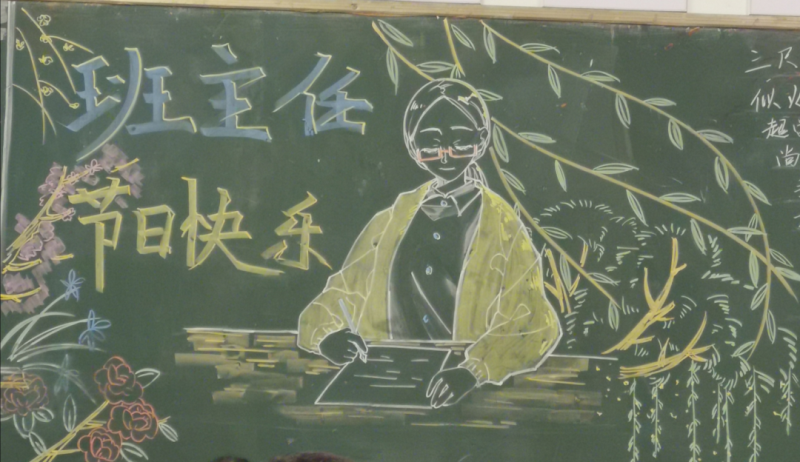 班主任
节日快乐
三尺
似火